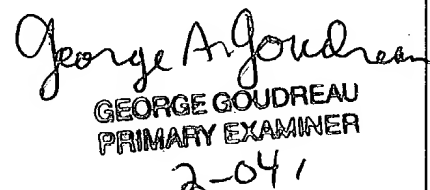 George A. Goudreau
GEORGE GOUDREAU
PRIMARY EXAMINER
2-04